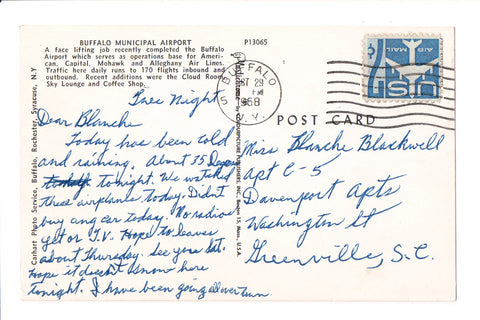 BUFFALO MUNICIPAL AIRPORT
A face lifting job recently completed the Buffalo
Airport which serves as operations base for Ameri-
can, Capital, Mohawk and Alleghany Air Lines.
Traffic here daily runs to 170 flights inbound and
outbound. Recent additions were the Cloud Room,
Sky Lounge and Coffee Shop.
P13065
Tues Night
Dear Blanche
Today has been cold
and raining. About 35 Degrees
tonight. We watched
these airplanes today. Didnt
buy any car today. No radios
yet or T.V. Hope to leave
about Thursday. See you Sat.
Hope it doesn't snow here
tonight. I have been going all over town.
Curhart Photo Service, Buffalo, Rochester, Syracuse, N.Y
BUFFALO
OCT 29
PM
1958
N.Y.
5
AIR MAIL
7¢
POST CARD
Miss Blanche Blackwell
Apt C-5
Davenport Apts
Washington St
Greenville, S.C.